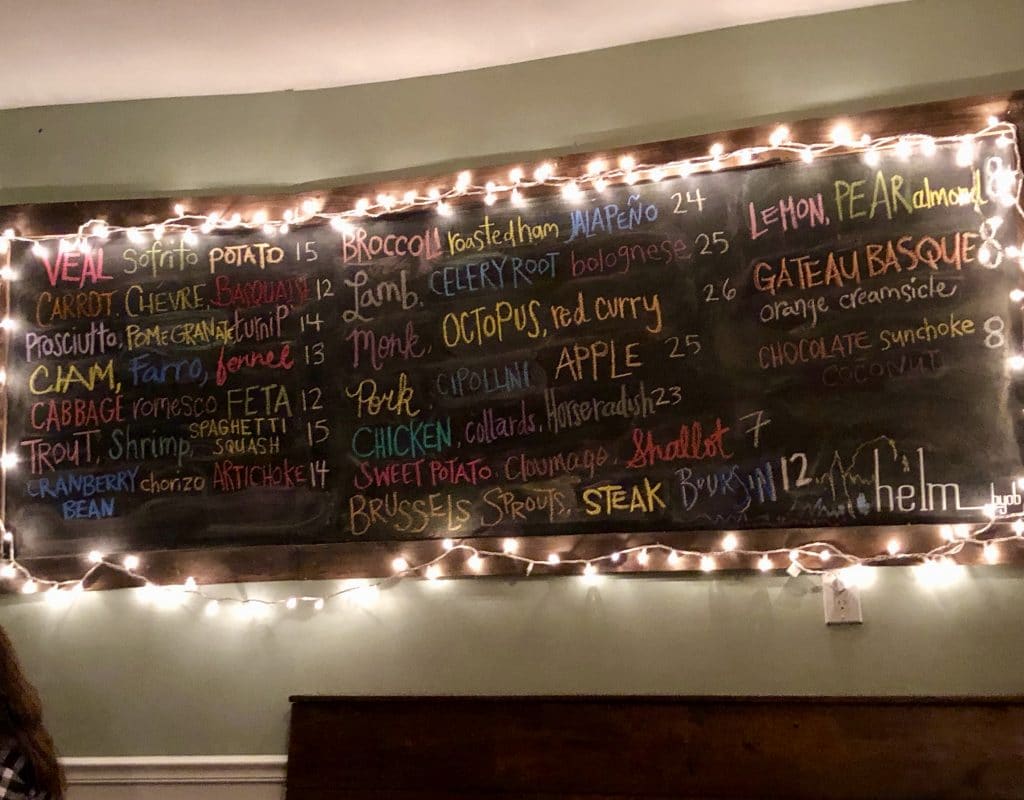 VEAL sofrito POTATO 15
CARROT. CHÉVRE, BASQUAISE 12
PROSCIUTTO, POMEGRANATE turnip 14
CLAM, Farro, fennel 13
CABBAGE romesco FETA 12
TROUT, Shrimp, SPAGHETTI SQUASH 15
CRANBERRY BEAN chorizo ARTICHOKE 14
BROCCOLI roasted ham JALAPEÑO 24
Lamb. CELERY ROOT bolognese 25
Monk, OCTOPUS, red curry 26
Pork, CIPOLLINI APPLE 25
CHICKEN, collards, Horseradish 23
SWEET POTATO, Cloumage, Shallot 7
BRUSSELS SPROUTS, STEAK BOURSIN 12
LEMON, PEAR almond 8
GATEAU BASQUE 8
orange creamsicle
CHOCOLATE sunchoke 8
COCONUT
helm
byob